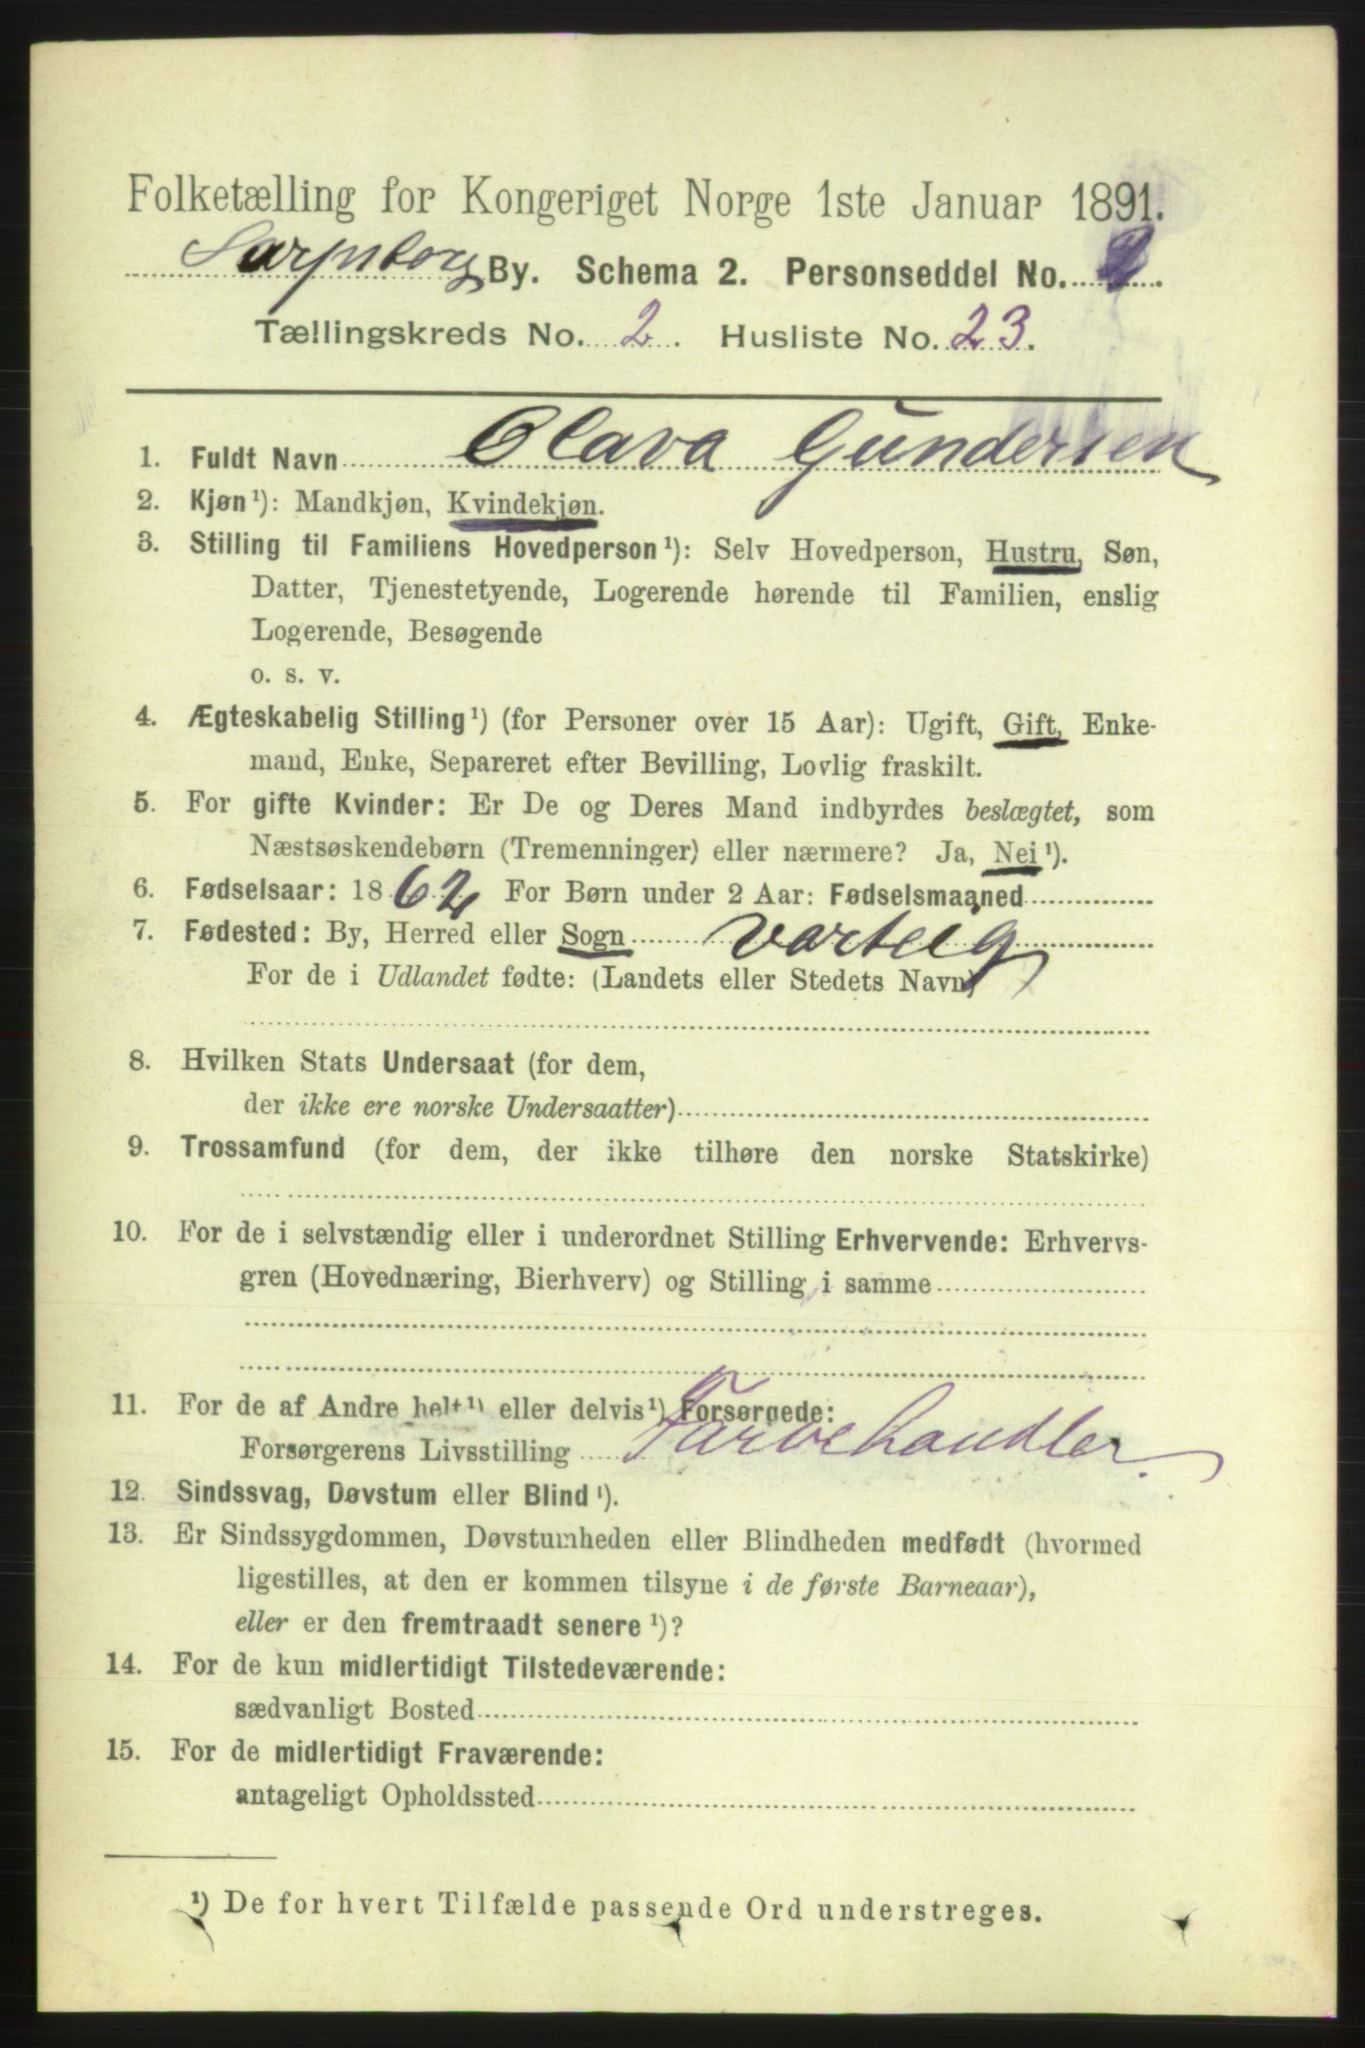 Folketælling for Kongeriget Norge 1ste Januar 1891.
Sarpsborg By. Schema 2. Personseddel No.
Tællingskreds No. 2. Husliste No. 23.
1. Fuldt Navn Olava Gundersen
2. Kjøn¹): Mandkjøn, Kvindekjøn.
3. Stilling til Familiens Hovedperson¹): Selv Hovedperson, Hustru, Søn,
Datter, Tjenestetyende, Logerende hørende til Familien, enslig
Logerende, Besøgende
o. s. v.
4. Ægteskabelig Stilling¹) (for Personer over 15 Aar): Ugift, Gift, Enke-
mand, Enke, Separeret efter Bevilling, Lovlig fraskilt.
5. For gifte Kvinder: Er De og Deres Mand indbyrdes beslægtet, som
Næstsøskendebørn (Tremenninger) eller nærmere? Ja, Nei¹).
6. Fødselsaar: 1862 For Børn under 2 Aar: Fødselsmaaned
7. Fødested: By, Herred eller Sogn Varteig
For de i Udlandet fødte: (Landets eller Stedets Navn)
8. Hvilken Stats Undersaat (for dem,
der ikke ere norske Undersaatter)
9. Trossamfund (for dem, der ikke tilhøre den norske Statskirke)
10. For de i selvstændig eller i underordnet Stilling Erhvervende: Erhvervs-
gren (Hovednæring, Bierhverv) og Stilling i samme
11. For de af Andre helt¹) eller delvis¹) Forsørgede:
Forsørgerens Livsstilling Farvehandler.
12. Sindssvag, Døvstum eller Blind¹).
13. Er Sindssygdommen, Døvstumheden eller Blindheden medfødt (hvormed
ligestilles, at den er kommen tilsyne i de første Barneaar),
eller er den fremtraadt senere¹)?
14. For de kun midlertidigt Tilstedeværende:
sædvanligt Bosted
15. For de midlertidigt Fraværende:
antageligt Opholdssted
¹) De for hvert Tilfælde passende Ord understreges.